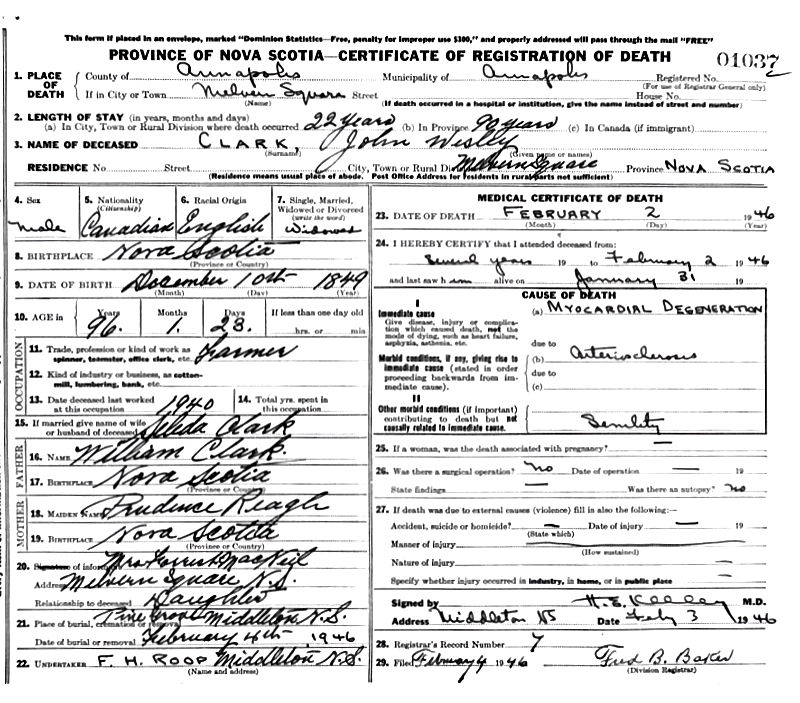 This form if placed in an envelope, marked "Dominion Statistics—Free, penalty for improper use $300," and properly addressed will pass through the mail "FREE"
PROVINCE OF NOVA SCOTIA—CERTIFICATE OF REGISTRATION OF DEATH
010372
1. PLACE OF DEATH County of Annapolis Municipality of Annapolis Registered No.
(For use of Registrar General only)
If in City or Town Melvern Square Street House No.
(Name) (If death occurred in a hospital or institution, give the name instead of street and number)
2. LENGTH OF STAY (in years, months and days)
(a) In City, Town or Rural Division where death occurred 22 years (b) In Province 90 years (c) In Canada (if immigrant)
3. NAME OF DECEASED CLARK, John Wesley
(Surname) (Given name or names)
RESIDENCE No. Street City, Town or Rural Div Melvern Square Province NOVA SCOTIA
(Residence means usual place of abode. Post Office Address for residents in rural parts not sufficient)
4. Sex 5. Nationality (Citizenship) 6. Racial Origin 7. Single, Married, Widowed or Divorced (write the word)
Male Canadian English Widowed
8. BIRTHPLACE Nova Scotia
(Province or Country)
9. DATE OF BIRTH December 10th 1849
(Month) (Day) (Year)
10. AGE in Years Months Days If less than one day old
96. 1. 23. hrs. or min
OCCUPATION
11. Trade, profession or kind of work as spinner, teamster, office clerk, etc. Farmer
12. Kind of industry or business, as cotton-mill, lumbering, bank, etc.
13. Date deceased last worked at this occupation 1940 14. Total yrs. spent in this occupation
15. If married give name of wife or husband of deceased Clark
FATHER
16. NAME William Clark.
17. BIRTHPLACE Nova Scotia
(Province or Country)
MOTHER
18. MAIDEN NAME Prudence Reagh
19. BIRTHPLACE Nova Scotia
(Province or Country)
20. Signature of informant Mrs Forrest MacNeil
Address Melvern Square N.S.
Relationship to deceased Daughter
21. Place of burial, cremation or removal Pine Grove Middleton N.S.
Date of burial or removal February 4th 1946
22. UNDERTAKER F. H. ROOP Middleton N.S.
(Name and address)
MEDICAL CERTIFICATE OF DEATH
23. DATE OF DEATH FEBRUARY 2 1946
(Month) (Day) (Year)
24. I HEREBY CERTIFY that I attended deceased from:
Several years 19 to February 2 1946
and last saw him alive on January 31 19
CAUSE OF DEATH
I
Immediate cause
Give disease, injury or complication which caused death, not the mode of dying, such as heart failure, asphyxia, asthenia, etc.
(a) MYOCARDIAL DEGENERATION
due to
Morbid conditions, if any, giving rise to immediate cause (stated in order proceeding backwards from immediate cause).
(b) Arteriosclerosis
due to
(c)
II
Other morbid conditions (if important) contributing to death but not causally related to immediate cause.
Senility
25. If a woman, was the death associated with pregnancy? —
26. Was there a surgical operation? no Date of operation — 19
State findings — Was there an autopsy? no
27. If death was due to external causes (violence) fill in also the following:—
Accident, suicide or homicide? — Date of injury — 19
(State which)
Manner of injury
(How sustained)
Nature of injury
Specify whether injury occurred in industry, in home, or in public place
Signed by H. E. Kelley M.D.
Address Middleton NS Date Feby 3 1946
28. Registrar's Record Number 7
29. Filed February 4 1946 Fred B. Baker
(Division Registrar)